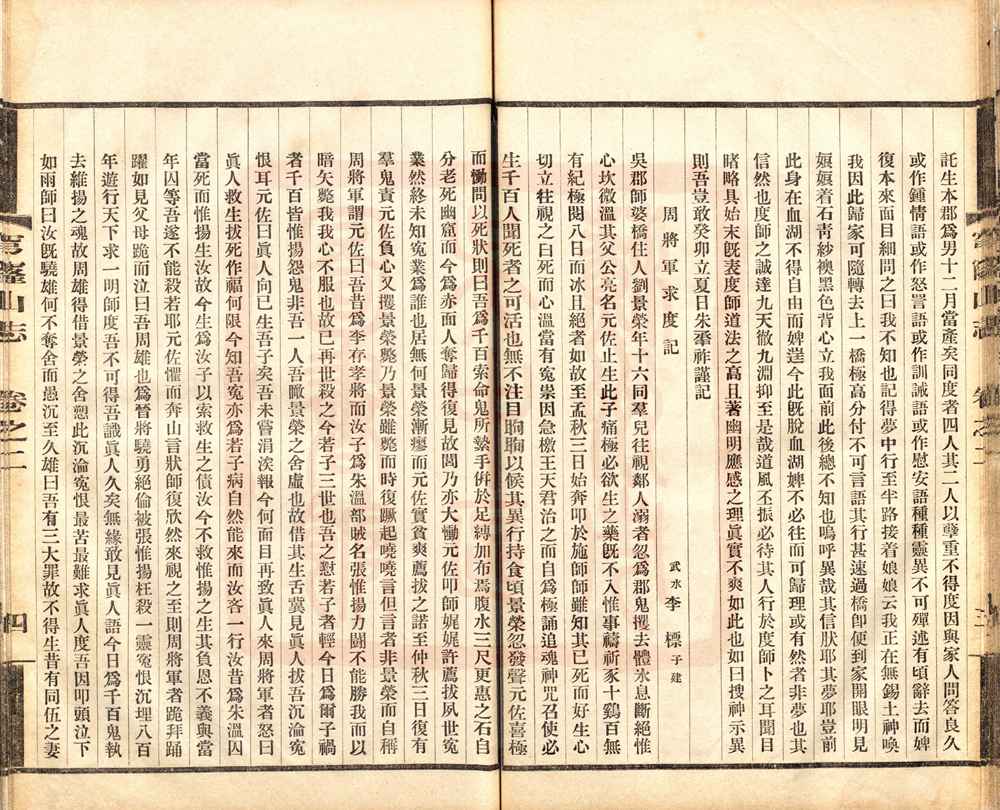 託生本郡爲男十二月當產矣同度者四人其二人以孽重不得度因與家人問答良久
或作鍾情語或作怒詈語或作訓誡語或作慰安語種種靈異不可殫述有頃辭去而婢
復本來面目細問之曰我不知也記得夢中行至半路接着娘娘云我正在無錫土神喚
我因此歸家可隨轉去上一橋極高分付不可言語其行甚速過橋卽便到家開眼明見
嬛嬛着石靑紗襖黑色背心立我面前此後總不知也嗚呼異哉其信狀耶其夢耶豈前
此身在血湖不得自由而婢逞今此旣脫血湖婢不必往而可歸理或有然者非夢也其
信然也度師之誠達九天徹九淵抑至是哉道風丕振必待其人行於度師卜之耳聞目
睹略具始末旣袠度師道法之高且著幽明應感之理眞實不爽如此也如曰搜神示異
則吾豈敢癸卯立夏日朱犖祚謹記
周將軍求度記
武水李標子建
吳郡師婆橋住人劉景榮年十六同羣兒往視鄰人溺者忽爲郡鬼攫去體氷息斷絕惟
心坎微溫其父公亮名元佐止生此子痛極必欲生之藥旣不入惟事禱祈豕十鷄百無
有紀極閱八日而冰且絕者如故至孟秋三日始奔叩於施師師雖知其已死而好生心
切立往視之曰死而心溫當有寃祟因急檄王天君治之而自爲極誦追魂神咒召使必
生千百人聞死者之可活也無不注目胸胸以候其異行持食頃景榮忽發聲元佐喜極
而慟問以死狀則曰吾爲千百索命鬼所縶手倂於足縛加布焉腹水三尺更惠之石自
分老死幽窟而今爲赤面人奪歸得復見故閭乃亦大慟元佐叩師娓娓許薦拔夙世寃
業然終未知寃業爲誰也居無何景榮漸瘳而元佐實貧爽薦拔之諾至仲秋三日復有
羣鬼責元佐負心又攫景榮斃乃景榮雖斃而時復蹶起嘵嘵言但言者非景榮而自稱
周將軍謂元佐曰吾昔爲李存孝將而汝子爲朱溫部賊名張惟揚力鬪不能勝我而以
暗矢斃我我心不服也故已再世殺之今若子三世也吾之懟若子者輕今日爲爾子禍
者千百皆惟揚怨鬼非吾一人吾瞰景榮之舍虛也故借其生舌冀見眞人拔吾沉淪寃
恨耳元佐曰眞人向已生吾子矣吾未嘗涓涘報今何面目再致眞人來周將軍者怒曰
眞人救生拔死作福何限今知吾寃亦爲若子病自然能來而汝吝一行汝昔爲朱溫囚
當死而惟揚生汝故今生爲汝子以索救生之債汝今不救惟揚之生其負恩不義與當
年囚等吾遂不能殺若耶元佐懼而奔山言狀師復欣然來視之至則周將軍者跪拜踊
躍如見父母跪而泣曰吾周雄也爲晉將驍勇絕倫被張惟揚枉殺一靈寃恨沉埋八百
年遊行天下求一明師度吾不可得吾識眞人久矣無緣敢見眞人語今日爲千百鬼執
去維揚之魂故周雄得借景榮之舍愬此沉淪寃恨最苦最難求眞人度吾因叩頭泣下
如雨師曰汝旣驍雄何不奪舍而愚沉至久雄曰吾有三大罪故不得生昔有同伍之妻
穹窿山志 卷之二 三
穹窿山志 卷之二 四